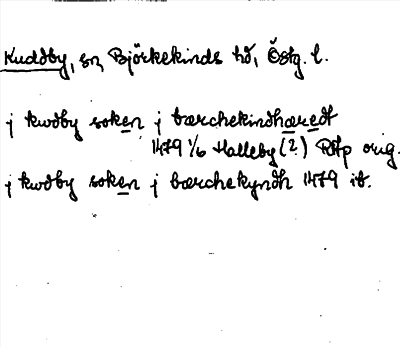 Kuddby, sn, Björkekinds hd, Östg. l.
j kwdby soken j bærchekindhæredt
1479 1/6 Halleby (?) RAp orig.
j kwdby soken j bærchekyndh 1479 ib.